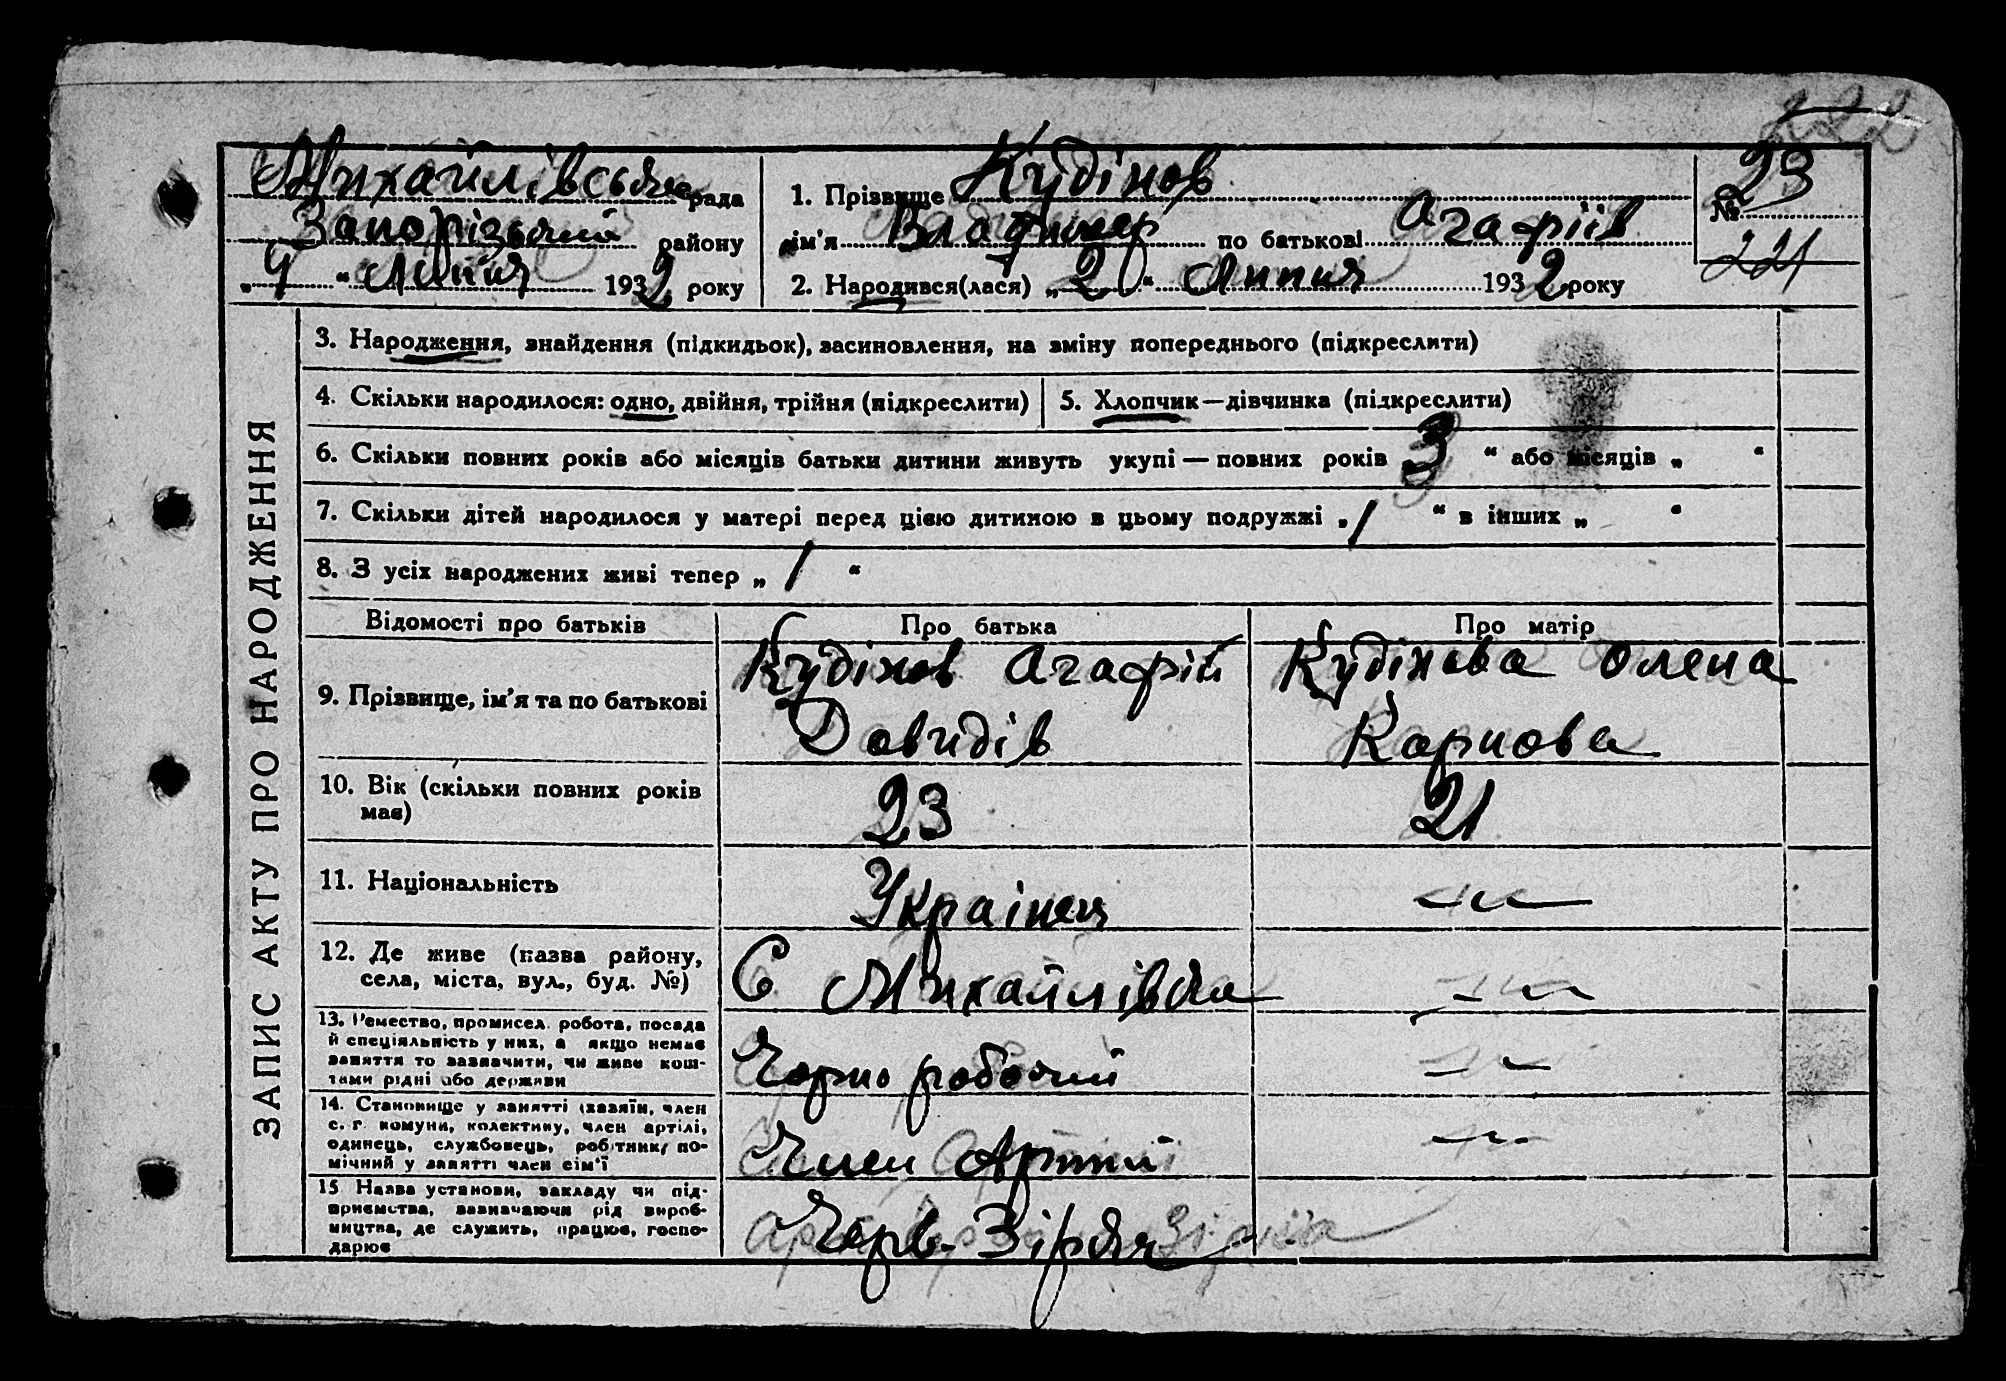 222
Михайлівська рада
Запорізький району
„ 4 “ Липня 1932 року
1. Прізвище Кудінов
ім'я Владимер по батькові Агафіів
2. Народився(лася) „ 2 “ Липня 1932 року
№ 23
221
ЗАПИС АКТУ ПРО НАРОДЖЕННЯ
3. Народження, знайдення (підкидьок), засиновлення, на зміну попереднього (підкреслити)
4. Скільки народилося: одно, двійня, трійня (підкреслити)
5. Хлопчик—дівчинка (підкреслити)
6. Скільки повних років або місяців батьки дитини живуть укупі — повних років „ 3 “ або місяців „ “
7. Скільки дітей народилося у матері перед цією дитиною в цьому подружжі „ 1 “ в інших „ “
8. З усіх народжених живі тепер „ 1 “
Відомості про батьків
Про батька
Про матір
9. Прізвище, ім'я та по батькові
Кудінов Агафій
Давидів
Кудінова Олена
Карпова
10. Вік (скільки повних років
має)
23
21
11. Національність
Українец
—„—
12. Де живе (назва району,
села, міста, вул., буд. №)
С Михайлівка
—„—
13. Ремество, промисел, робота, посада
й спеціяльність у них, а якщо немає
заняття то зазначити, чи живе кош-
тами рідні або держави
Чорно робочий
—„—
14. Становище у занятті (хазяїн, член
с. г. комуни, колективу, член артілі,
одинець, службовець, робітник, по-
мічний у занятті член сім'ї
Член Артілі
—„—
15 Назва установи, закладу чи під-
приємства, зазначаючи рід вироб-
ництва, де служить, працює, госпо-
дарює
Черв-Зірка